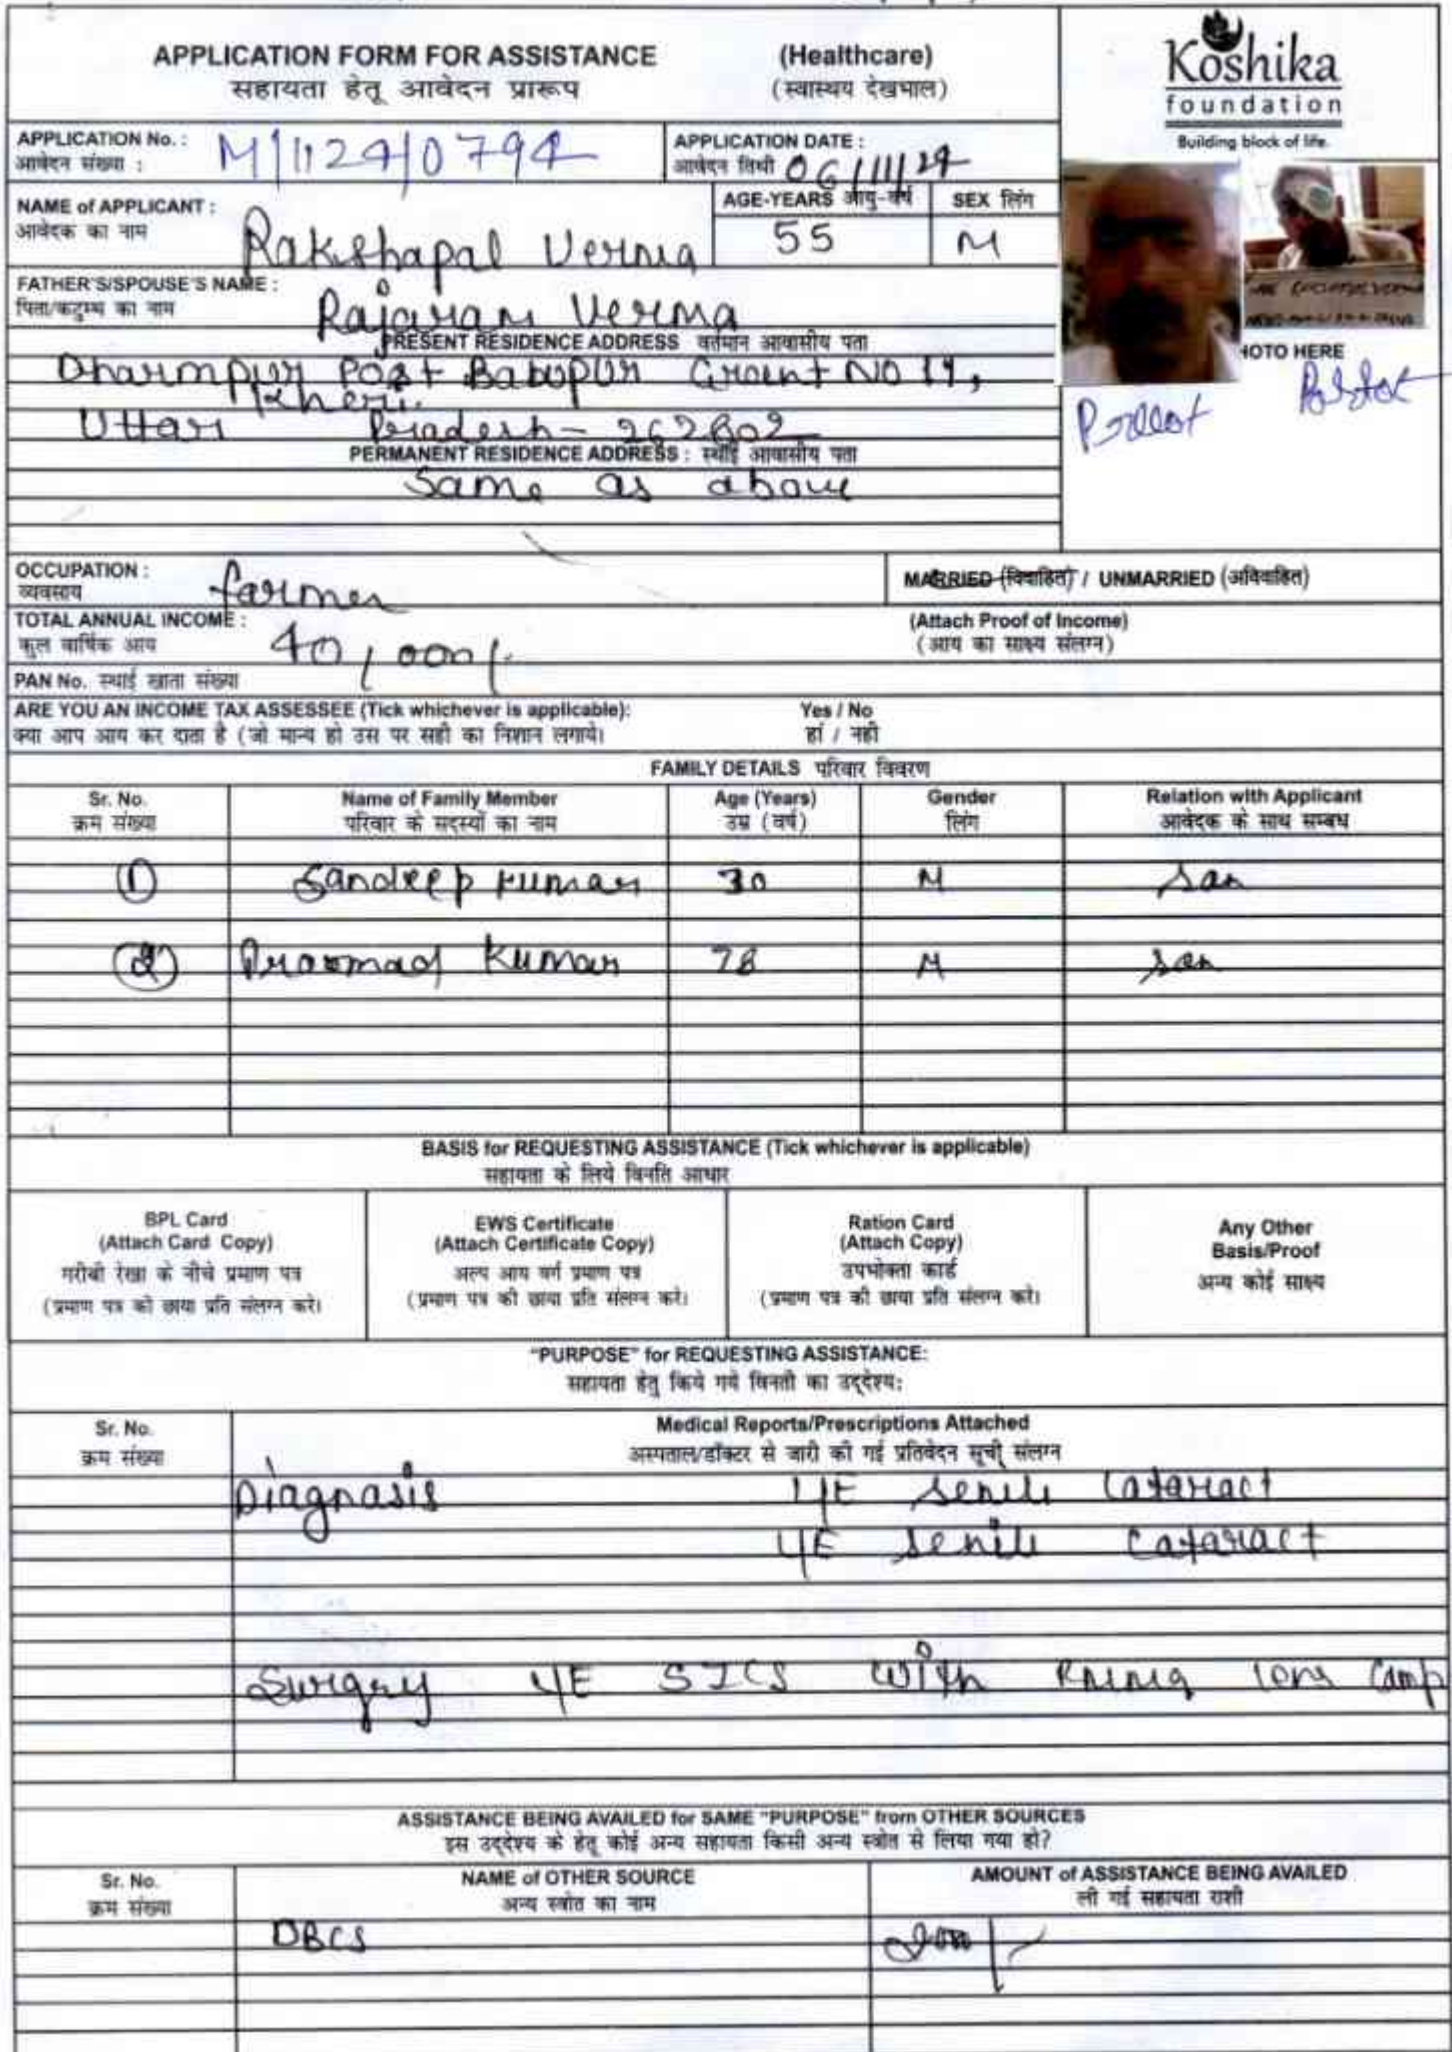 APPLICATION FORM FOR ASSISTANCE (Healthcare)
सहायता हेतू आवेदन प्रारूप (स्वास्थय देखभाल)
Koshika
foundation
Building block of life.
APPLICATION No. :
आवेदन संख्या : M/1124/0794
APPLICATION DATE :
आवेदन तिथी 06/11/24
NAME of APPLICANT :
आवेदक का नाम Rakshapal Verma
AGE-YEARS आयु-वर्ष
55
SEX लिंग
M
FATHER'S/SPOUSE'S NAME :
पिता/कटुम्ब का नाम Rajaram Verma
HOTO HERE
PRESENT RESIDENCE ADDRESS वर्तमान आवासीय पता
Dharmpur Post Babupur Grant NO 11,
Kheri.
Uttar Pradesh - 262802
PERMANENT RESIDENCE ADDRESS : स्थाई आवासीय पता
Same as above
OCCUPATION :
व्यवसाय farmer
MARRIED (विवाहित) / UNMARRIED (अविवाहित)
TOTAL ANNUAL INCOME :
कुल वार्षिक आय 40,000/-
(Attach Proof of Income)
(आय का साक्ष्य संलग्न)
PAN No. स्थाई खाता संख्या
ARE YOU AN INCOME TAX ASSESSEE (Tick whichever is applicable): Yes / No
क्या आप आय कर दाता है (जो मान्य हो उस पर सही का निशान लगाये। हां / नही
FAMILY DETAILS परिवार विवरण
Sr. No. Name of Family Member Age (Years) Gender Relation with Applicant
क्रम संख्या परिवार के सदस्यों का नाम उम्र (वर्ष) लिंग आवेदक के साथ सम्बध
1 Sandeep kumar 30 M san
2 Praomad Kumar 28 M san
BASIS for REQUESTING ASSISTANCE (Tick whichever is applicable)
सहायता के लिये विनति आधार
BPL Card
(Attach Card Copy)
गरीबी रेखा के नीचे प्रमाण पत्र
(प्रमाण पत्र की छाया प्रति संलग्न करे।
EWS Certificate
(Attach Certificate Copy)
अल्प आय वर्ग प्रमाण पत्र
(प्रमाण पत्र की छाया प्रति संलग्न करे।
Ration Card
(Attach Copy)
उपभोक्ता कार्ड
(प्रमाण पत्र की छाया प्रति संलग्न करे।
Any Other
Basis/Proof
अन्य कोई साक्ष्य
"PURPOSE" for REQUESTING ASSISTANCE:
सहायता हेतु किये गये विनती का उद्देश्य:
Sr. No. Medical Reports/Prescriptions Attached
क्रम संख्या अस्पताल/डॉक्टर से जारी की गई प्रतिवेदन सूची संलग्न
Diagnasis senile Cataract
senile Cataract
Surgry SICS With lens Camp
ASSISTANCE BEING AVAILED for SAME "PURPOSE" from OTHER SOURCES
इस उद्देश्य के हेतू कोई अन्य सहायता किसी अन्य स्त्रोत से लिया गया हो?
Sr. No. NAME of OTHER SOURCE AMOUNT of ASSISTANCE BEING AVAILED
क्रम संख्या अन्य स्त्रोत का नाम ली गई सहायता राशी
DBCS 2000/-